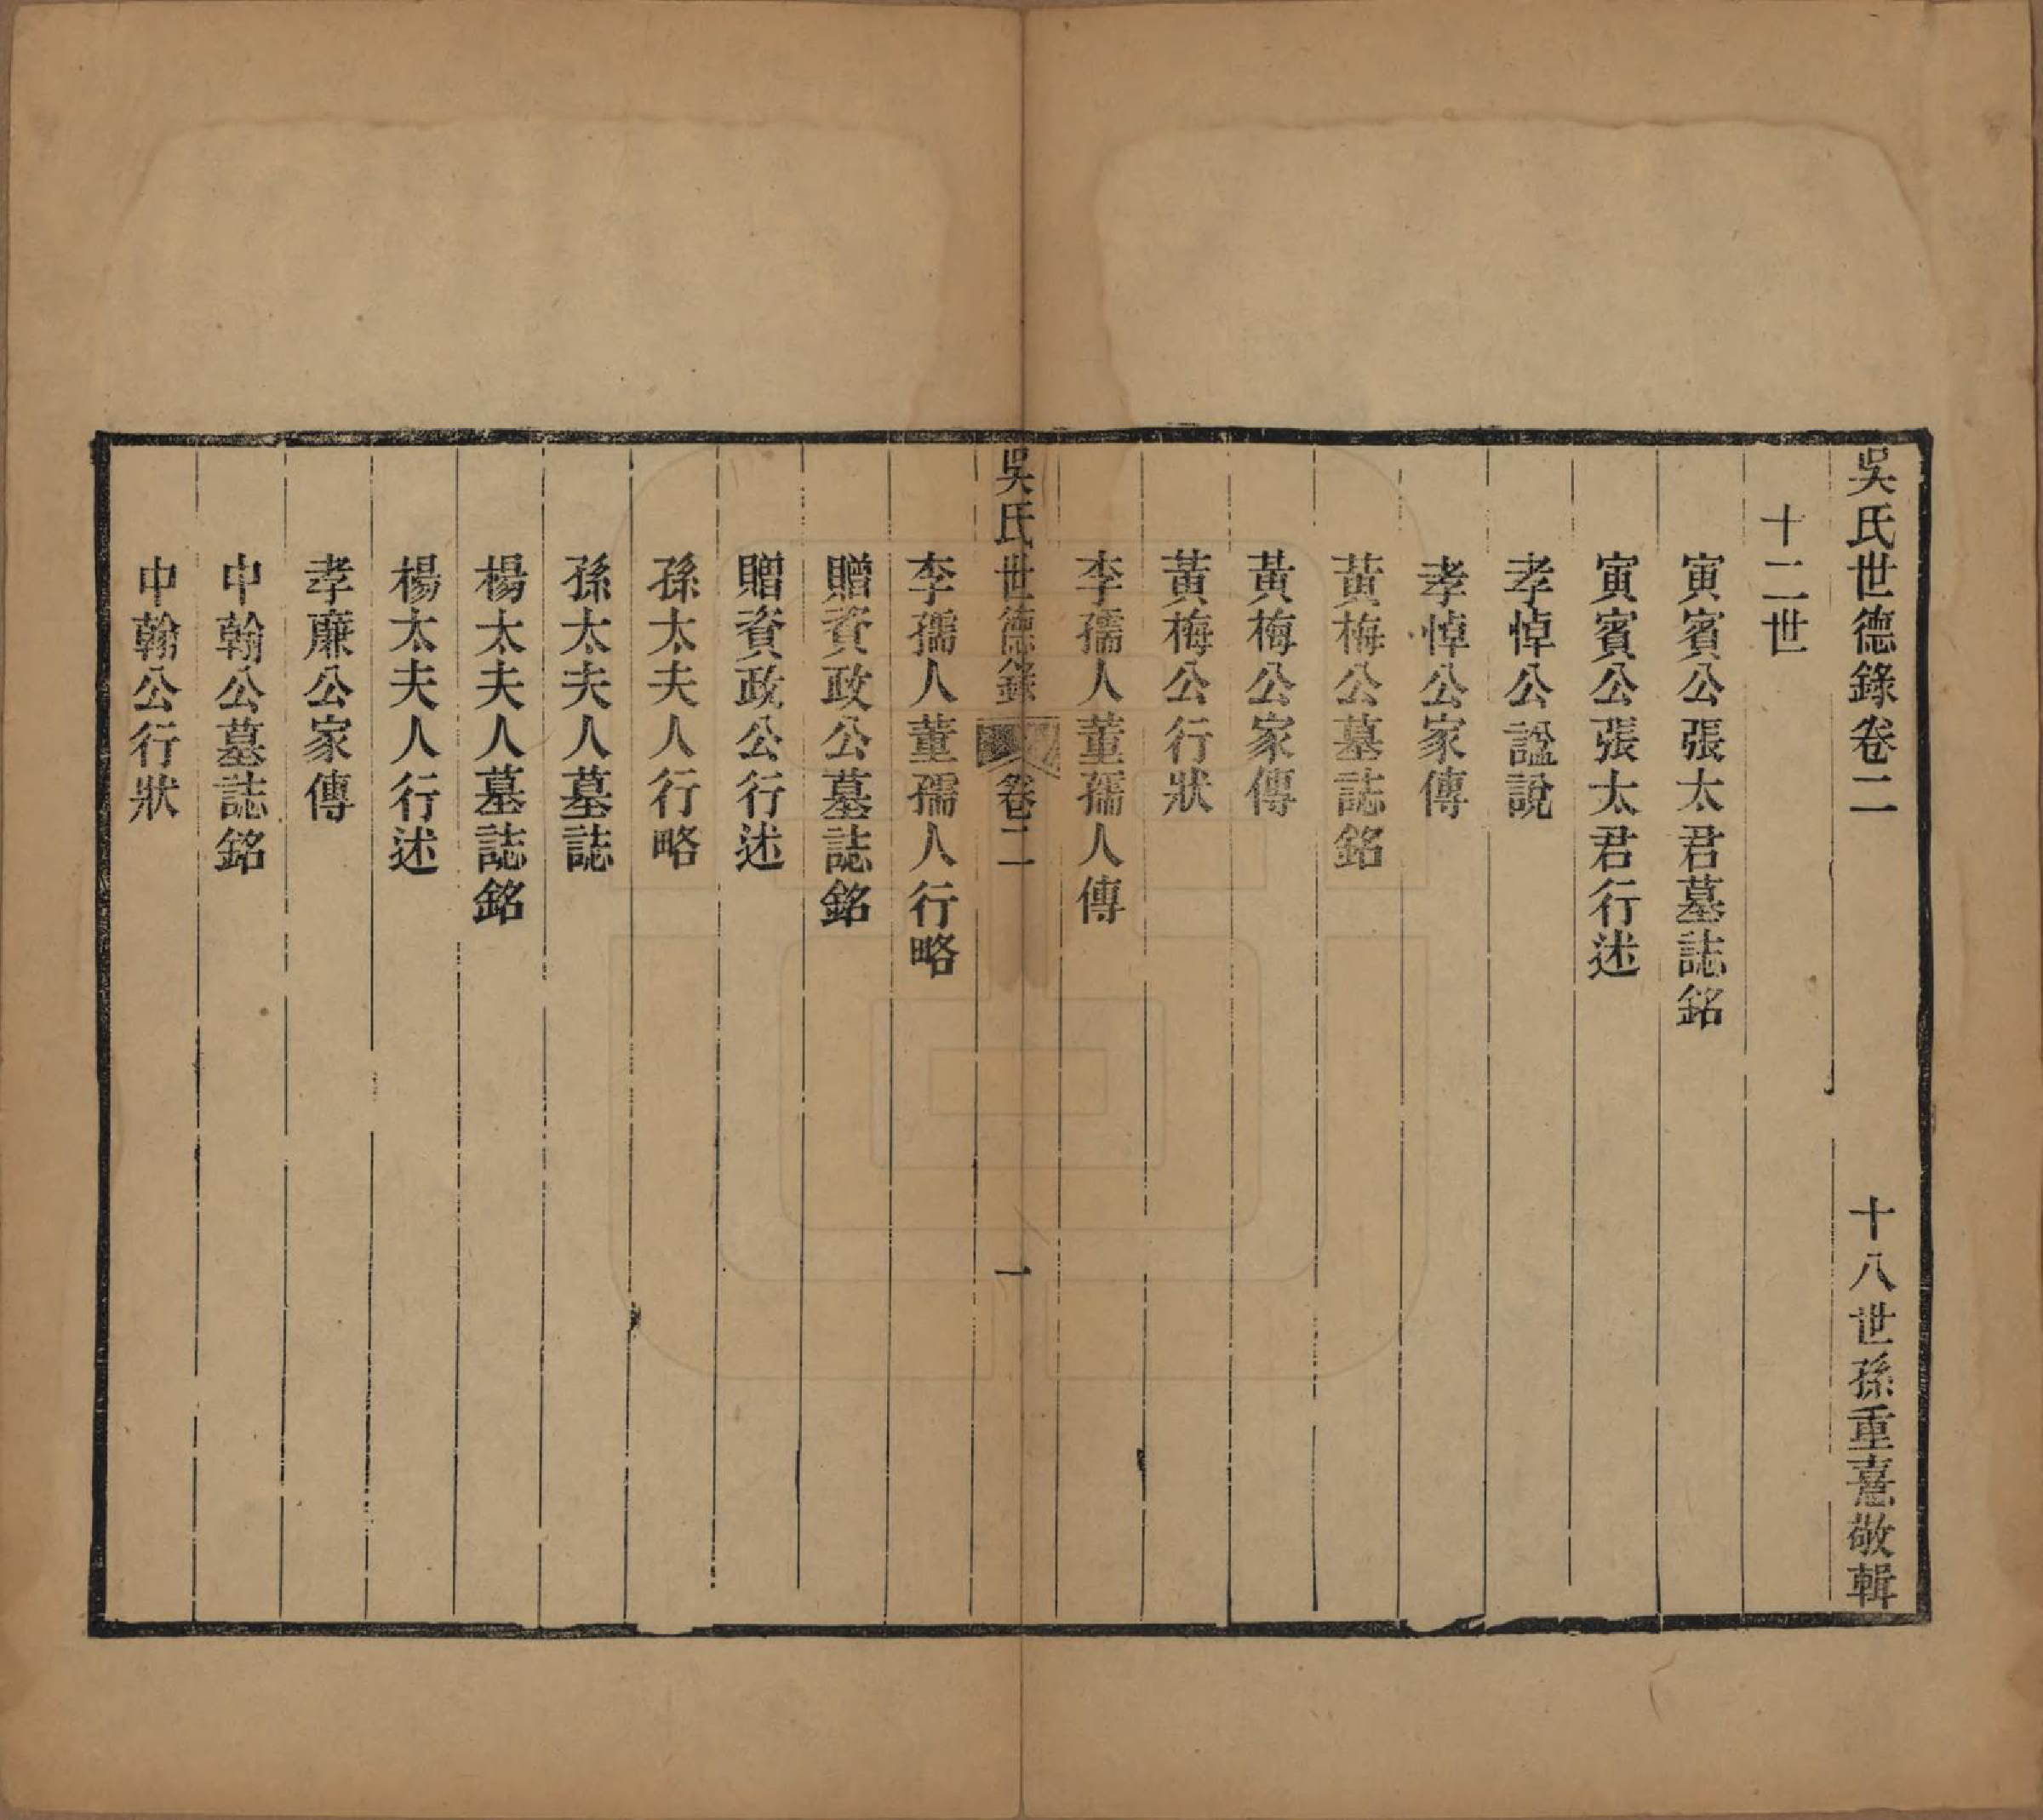 吳氏世德錄卷二 十八世孫重憙敬輯
十二世
寅賓公張太君墓誌銘
寅賓公張太君行述
孝悼公諡說
孝悼公家傳
黃梅公墓誌銘
黃梅公家傳
黃梅公行狀
李孺人董孺人傳
吳氏世德錄 卷二 一
李孺人董孺人行略
贈資政公墓誌銘
贈資政公行述
孫太夫人行略
孫太夫人墓誌
楊太夫人墓誌銘
楊太夫人行述
孝廉公家傳
中翰公墓誌銘
中翰公行狀